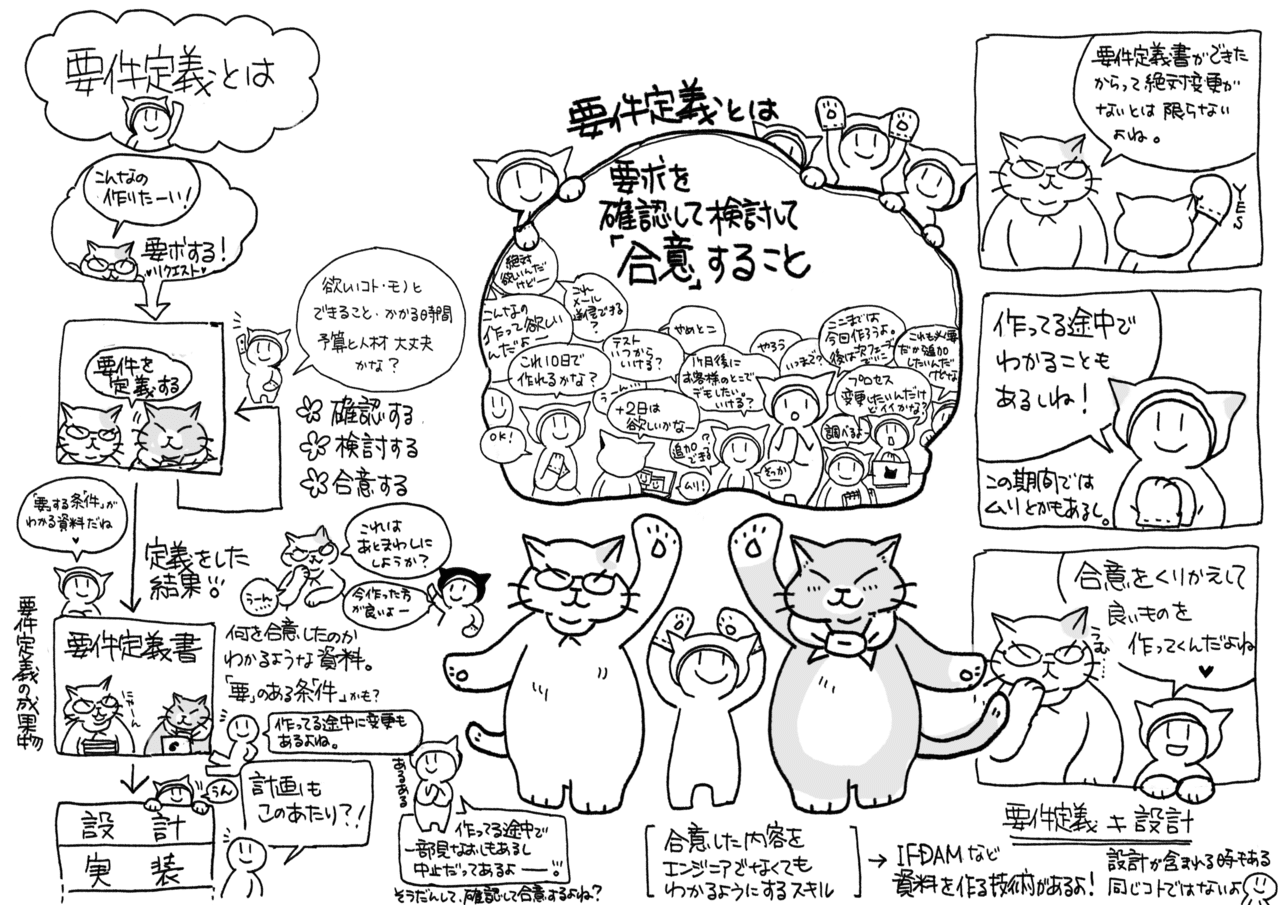 要件定義とは
こんなの
作りたーい！
要求する！
♥リクエスト♥
欲いコト・モノと
できること・かかる時間
予算と人材 大丈夫
かな？
要件を
定義する
確認する
検討する
合意する
「要」する条「件」が
わかる資料だね
♥
定義をした
結果!!
これは
あとまわしに
しようか？
うーん…
今作った方
が良いよー
要件定義の成果物
要件定義書
にゃーん
何を合意したのか
わかるような資料。
「要」のある条「件」かも？
作ってる途中に変更も
あるよね。
うん
設計
実装
計画も
このあたり？！
あるある
作ってる途中で
一部見なおしもあるし
中止だってあるよ――!!!
そうだんして、確認して合意するよね？
要件定義とは
要求を
確認して検討して
「合意」すること
絶対
欲いんだ
けどー
こんなの
作って欲しい
んだよー
これ
メール
送信できる
？
これ10日で
作れるかな？
テスト
いつから
いける？
やめとこ
1ヶ月後に
お客様のとこで
デモしたい。
いける？
やろう
いつまで？
ここまでは
今回作ろうよ。
後は次フェーズ
でいこ
これも必要
だから追加
したいんだ
けどな
プロセス
変更したいんだけ
どイイかな？
うーん…
+2日は
欲しいかなー
OK！
追加
できる？
調べるよー
そっか
ムリ！
合意した内容を
エンジニアでなくても
わかるようにするスキル
→ IFDAMなど
資料を作る技術があるよ！
要件定義書ができた
からって絶対変更が
ないとは限らない
よね。
YES
作ってる途中で
わかることも
あるしね！
この期間では
ムリとかもあるし。
合意をくりかえして
良いものを
作ってくんだよね
♥
うむ…
要件定義≠設計
設計が含まれる時もある
同じコトではないよ